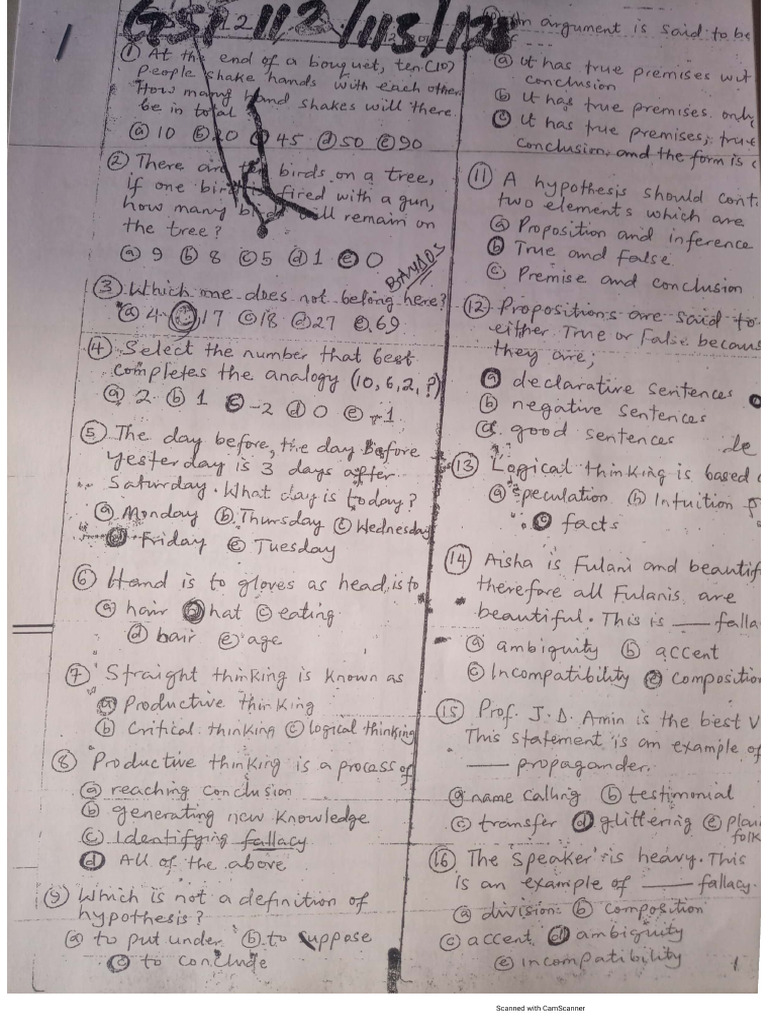 1
GST 112/113/12
① At the end of a bouquet, ten (10)
people shake hands with each other.
How many hand shakes will there
be in total
ⓐ 10 ⓑ 20 ⓒ 45 ⓓ 50 ⓔ 90
② There are birds on a tree,
if one bird is fired with a gun,
how many will remain on
the tree?
ⓐ 9 ⓑ 8 ⓒ 5 ⓓ 1 ⓔ 0
③ Which one does not belong here?
ⓐ 4 ⓑ 17 ⓒ 18 ⓓ 27 ⓔ 69
④ Select the number that best
completes the analogy (10, 6, 2, ?)
ⓐ 2 ⓑ 1 ⓒ -2 ⓓ 0 ⓔ -1
⑤ The day before, the day before
yesterday is 3 days after
Saturday. What day is today?
ⓐ Monday ⓑ Thursday ⓒ Wednesday
ⓓ Friday ⓔ Tuesday
⑥ Hand is to gloves as head is to
ⓐ hair ⓑ hat ⓒ eating
ⓓ bair ⓔ age
⑦ Straight thinking is known as
ⓐ Productive thinking
ⓑ Critical thinking ⓒ logical thinking
⑧ Productive thinking is a process of
ⓐ reaching conclusion
ⓑ generating new knowledge
ⓒ Identifying fallacy
ⓓ All of the above
⑨ Which is not a definition of
hypothesis?
ⓐ to put under ⓑ to suppose
ⓒ to conclude
An argument is said to be
ⓐ it has true premises wit
conclusion
ⓑ it has true premises only
ⓒ it has true premises, true
conclusion, and the form is
⑪ A hypothesis should cont
two elements which are
ⓐ Proposition and inference
ⓑ True and False
ⓒ Premise and conclusion
⑫ Propositions are said to
either True or False becaus
they are;
ⓐ declarative sentences
ⓑ negative sentences
ⓒ good sentences
⑬ Logical thinking is based
ⓐ speculation ⓑ Intuition
ⓒ facts
⑭ Aisha is Fulani and beautif
therefore all Fulanis are
beautiful. This is ___ falla
ⓐ ambiguity ⓑ accent
ⓒ Incompatibility ⓓ Composition
⑮ Prof. J. D. Amin is the best V
This statement is an example of
___ propagander.
ⓐ name calling ⓑ testimonial
ⓒ transfer ⓓ glittering ⓔ plain
folk
⑯ The Speaker is heavy. This
is an example of ___ fallacy.
ⓐ division ⓑ composition
ⓒ accent ⓓ ambiguity
ⓔ incompatibility
1
Scanned with CamScanner